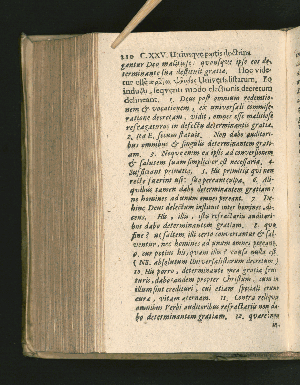 210 C. XXV. Utriusque partis doctrina
gantur Deo malitiose: quousque ipso eos de-
terminante sua destituit gratia. Hoc vide-
tur esse Universalistarum. Eo
inductu, sequenti modo electionis decretum
delineant. 1. Deus post omnium redemtio-
nem & vocationem, ex universali commise-
ratione decretam, vidit, omnes esse malitiose
refragaturos in defectu determinantis gratiæ.
2. itaq. sicuti statuit. Non dabo auditori-
bus omnibus & singulis determinantem grati-
am. 3. Neque enim ea ipsis ad conversionem
& salutem suam simpliciter est necessaria. 4.
Sufficiant primatia. 5. His primitia qui non
recte fuerint usi: suo pereant culpa. 6. Ali-
quibus tamen dabo determinantem gratiam:
ne homines ad unum omnes pereant. 7. De-
hinc Deus delectum instituit inter homines, di-
cens. His, istis, istis refractariis auditori-
bus dabo determinantem gratiam. 8. quo
fine? ut saltem illi certo convertantur & sal-
ventur, nec homines ad unum omnes pereant.
9. cur potius his, quam illis? causa nulla est.
( NB. absolutum Universalistarum decretum )
10. His porro, determinante mea gratia fru-
turis, dabo eundem propter Christum, cum in
illum sint credituri, cui etiam speciali erunt
cura, vitam æternam. 11. Contra reliquis
omnibus Verbi auditoribus refractariis non da-
bo determinantem gratiam. 12. quare non